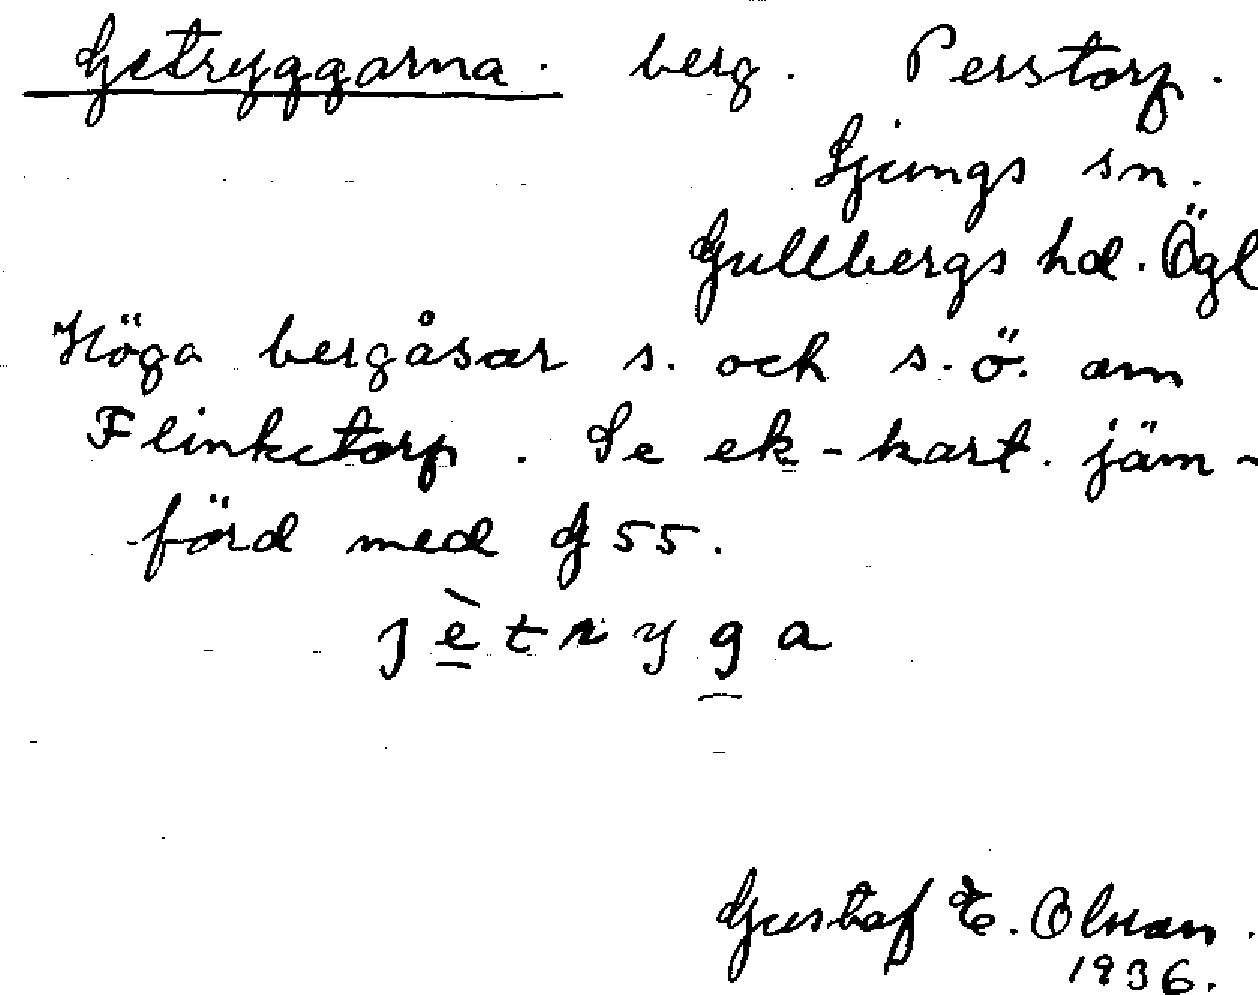 Getryggarna. berg. Perstorp.
Ljungs sn.
Gullbergs hd. Ögl
Höga bergåsar s. och s.ö. om
Flinketorp. Se ek-kart. jäm-
förd med G 55.
jètryga
Gustaf E. Olsson.
1936.